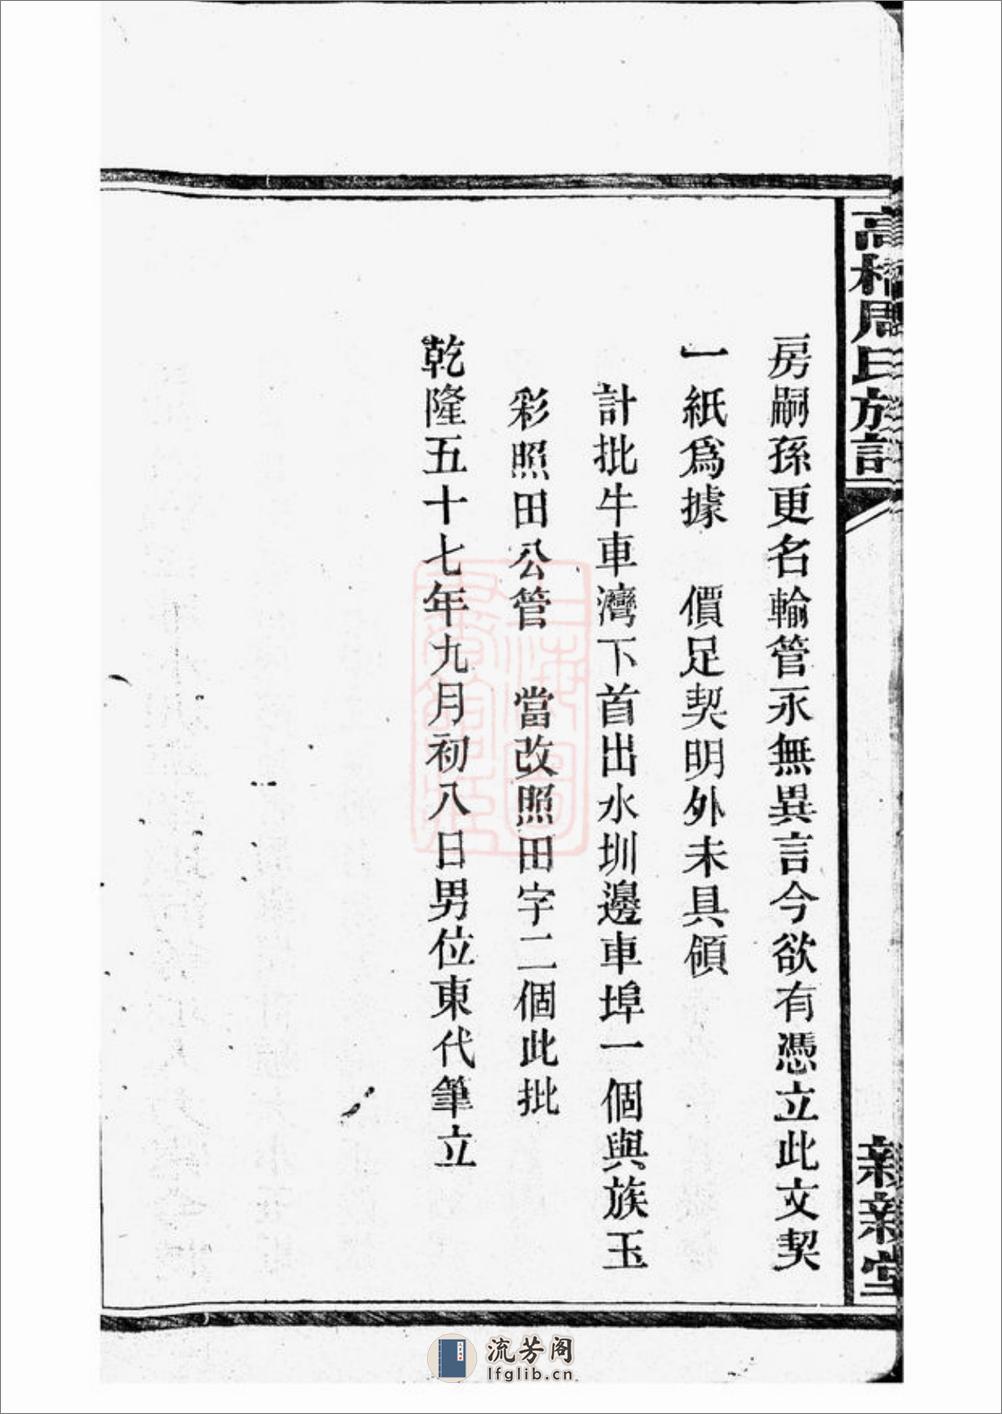 高橋周氏族譜
親親堂
房嗣孫更名輸管永無異言今欲有憑立此文契
一紙爲據　價足契明外未具領
計批牛車灣下首出水圳邊車埠一個與族玉
彩照田公管　當改照田字二個此批
乾隆五十七年九月初八日男位東代筆立
流芳阁
lfglib.cn